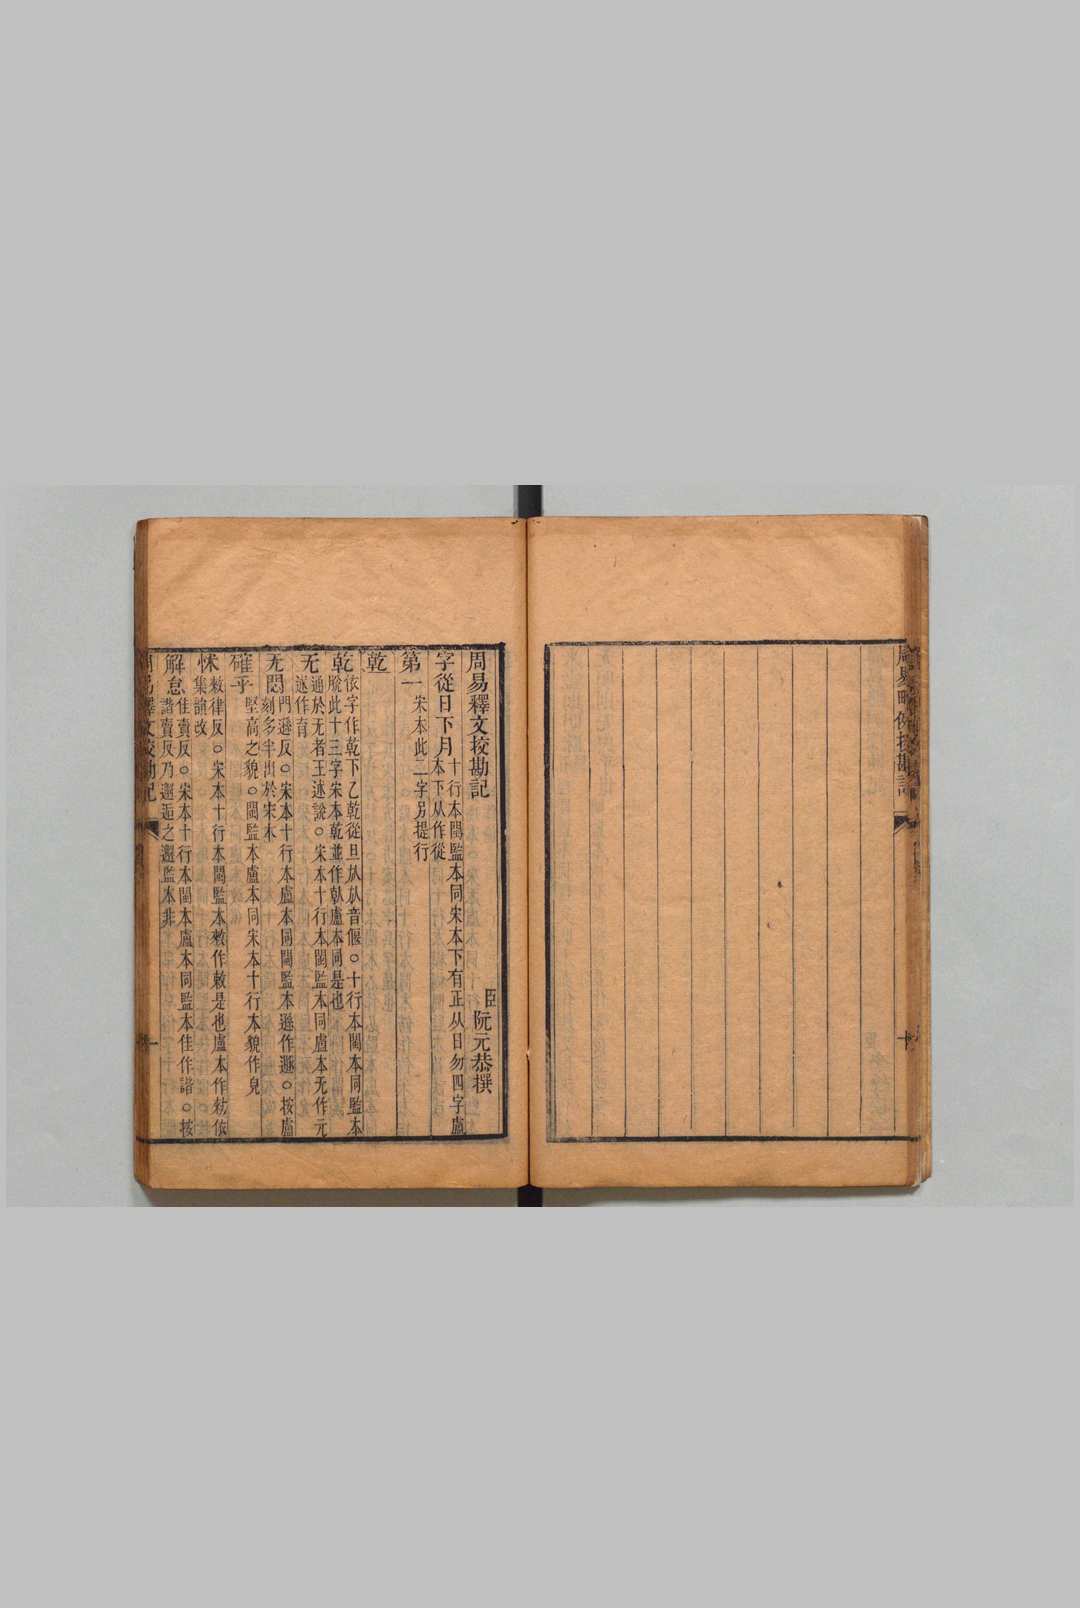 周易略例挍勘記
十
周易釋文挍勘記
臣阮元恭撰
字從日下月十行本閩監本同宋本下有正从日勿四字盧
本下从作從
第一宋本此二字另提行
乾
乾依字作乾下乙乾從旦㫃㫃音偃○十行本閩本同監本
脫此十三字宋本乾並作倝盧本同是也
无通於无者王述說○宋本十行本閩監本同盧本无作元
遂作育
无悶門遜反○宋本十行本盧本同閩監本遜作遯○按盧
刻多半出於宋本
確乎堅高之貌○閩監本盧本同宋本十行本貌作皃
怵敕律反○宋本十行本閩監本敕作敕是也盧本作勑依
集韻改
解怠佳賣反○宋本十行本閩本盧本同監本佳作諧○按
諧賣反乃邂逅之邂監本非
周易釋文挍勘記
一